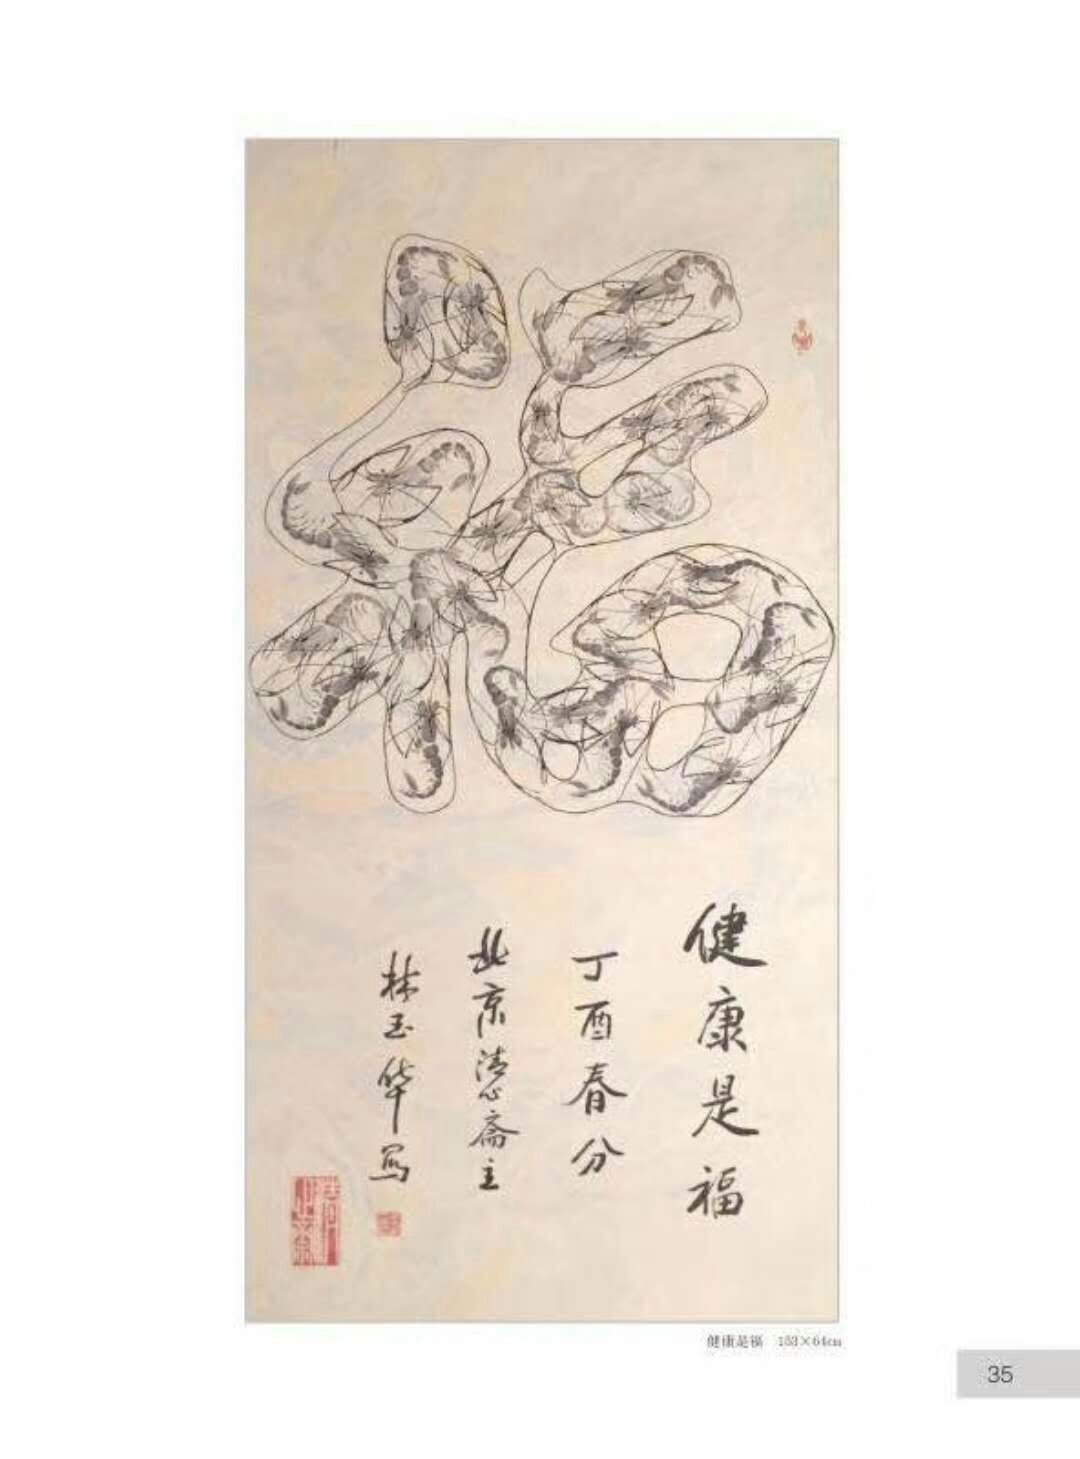 福
健康是福
丁酉春分
北京清心斋主
林玉华写
健康是福 153×64cm
35